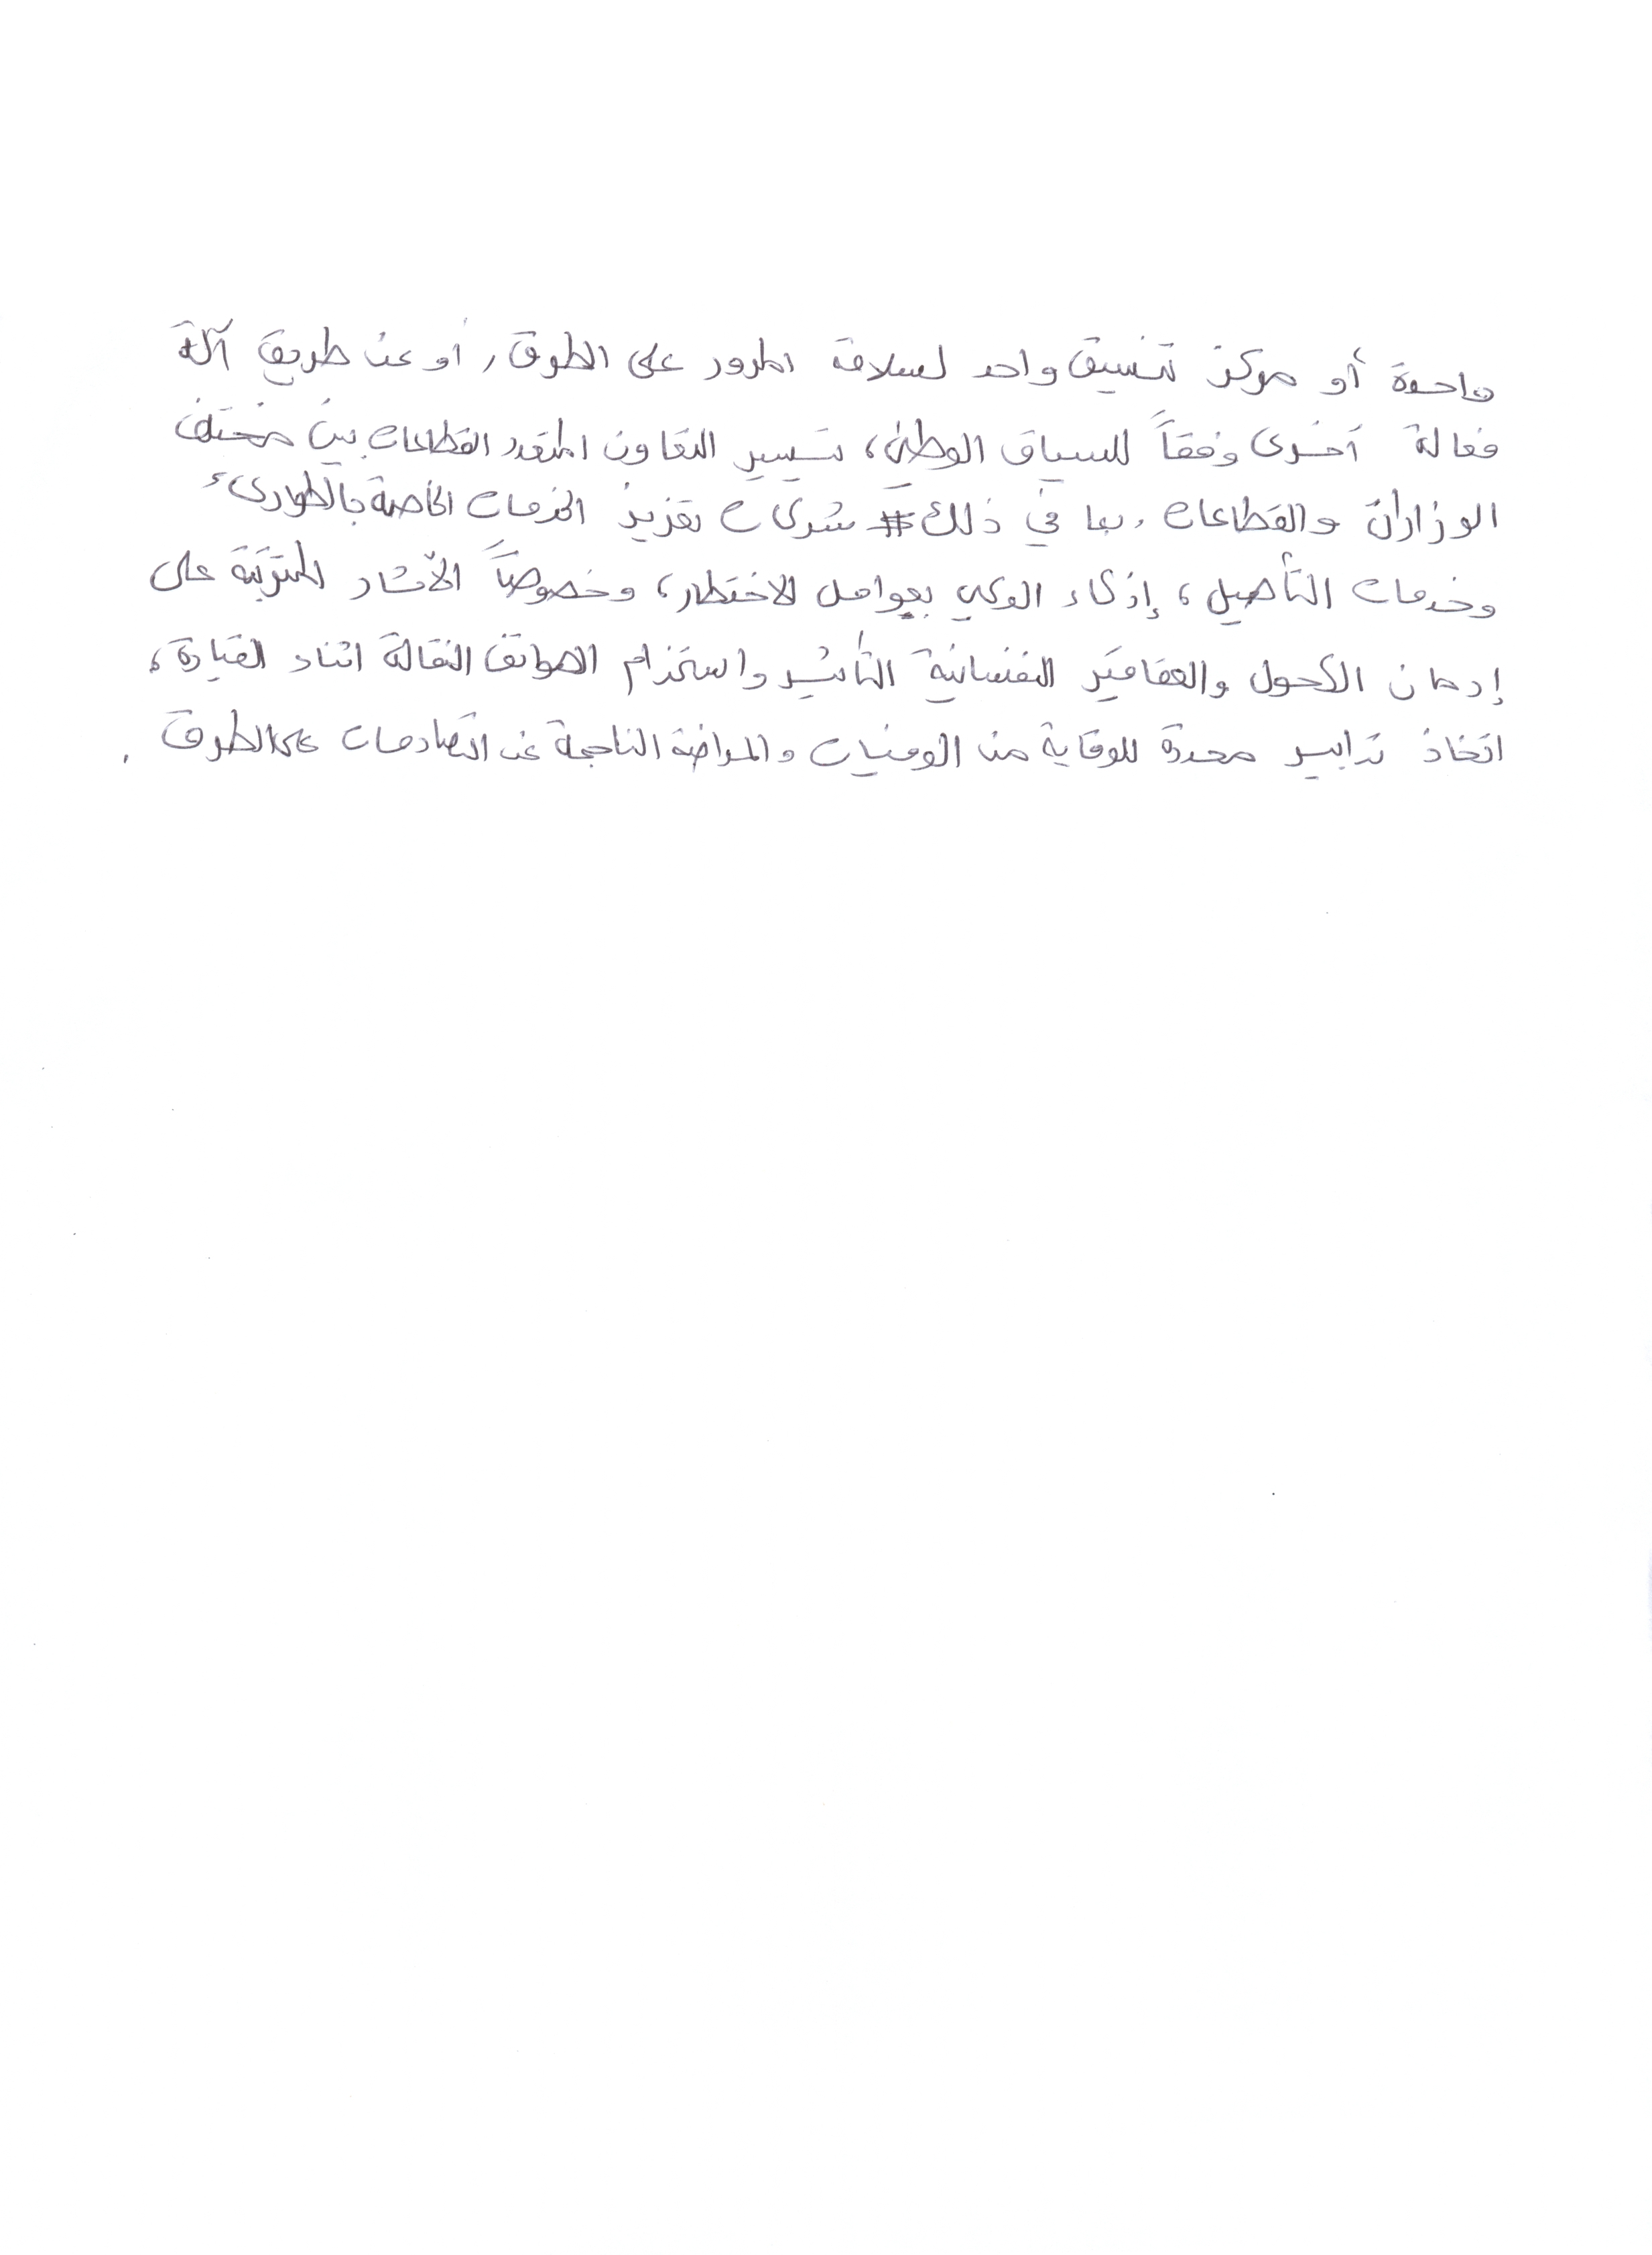 واحدة أو مركز تنسيق واحد لسلامة المرور على الطرق, أو عن طريق آلة
فعالة أخرى وفقاً للسياق الوطني، تيسير التعاون المتعدد القطاعات بين مختلف
الوزارات والقطاعات، بما في ذلك شركات تعزيز الخدمات الخاصة بالطوارىء
وخدمات التأهيل، إذكاء الوعي بعوامل الاختطار، وخصوصاً الآثار المترتبة على
إدمان الكحول والعقاقير النفسانية التأثير واستخدام الهواتف النقالة اثناء القيادة،
اتخاذ تدابير محددة للوقاية من الوفيات والمراضة الناجمة عن التصادمات على الطرق.